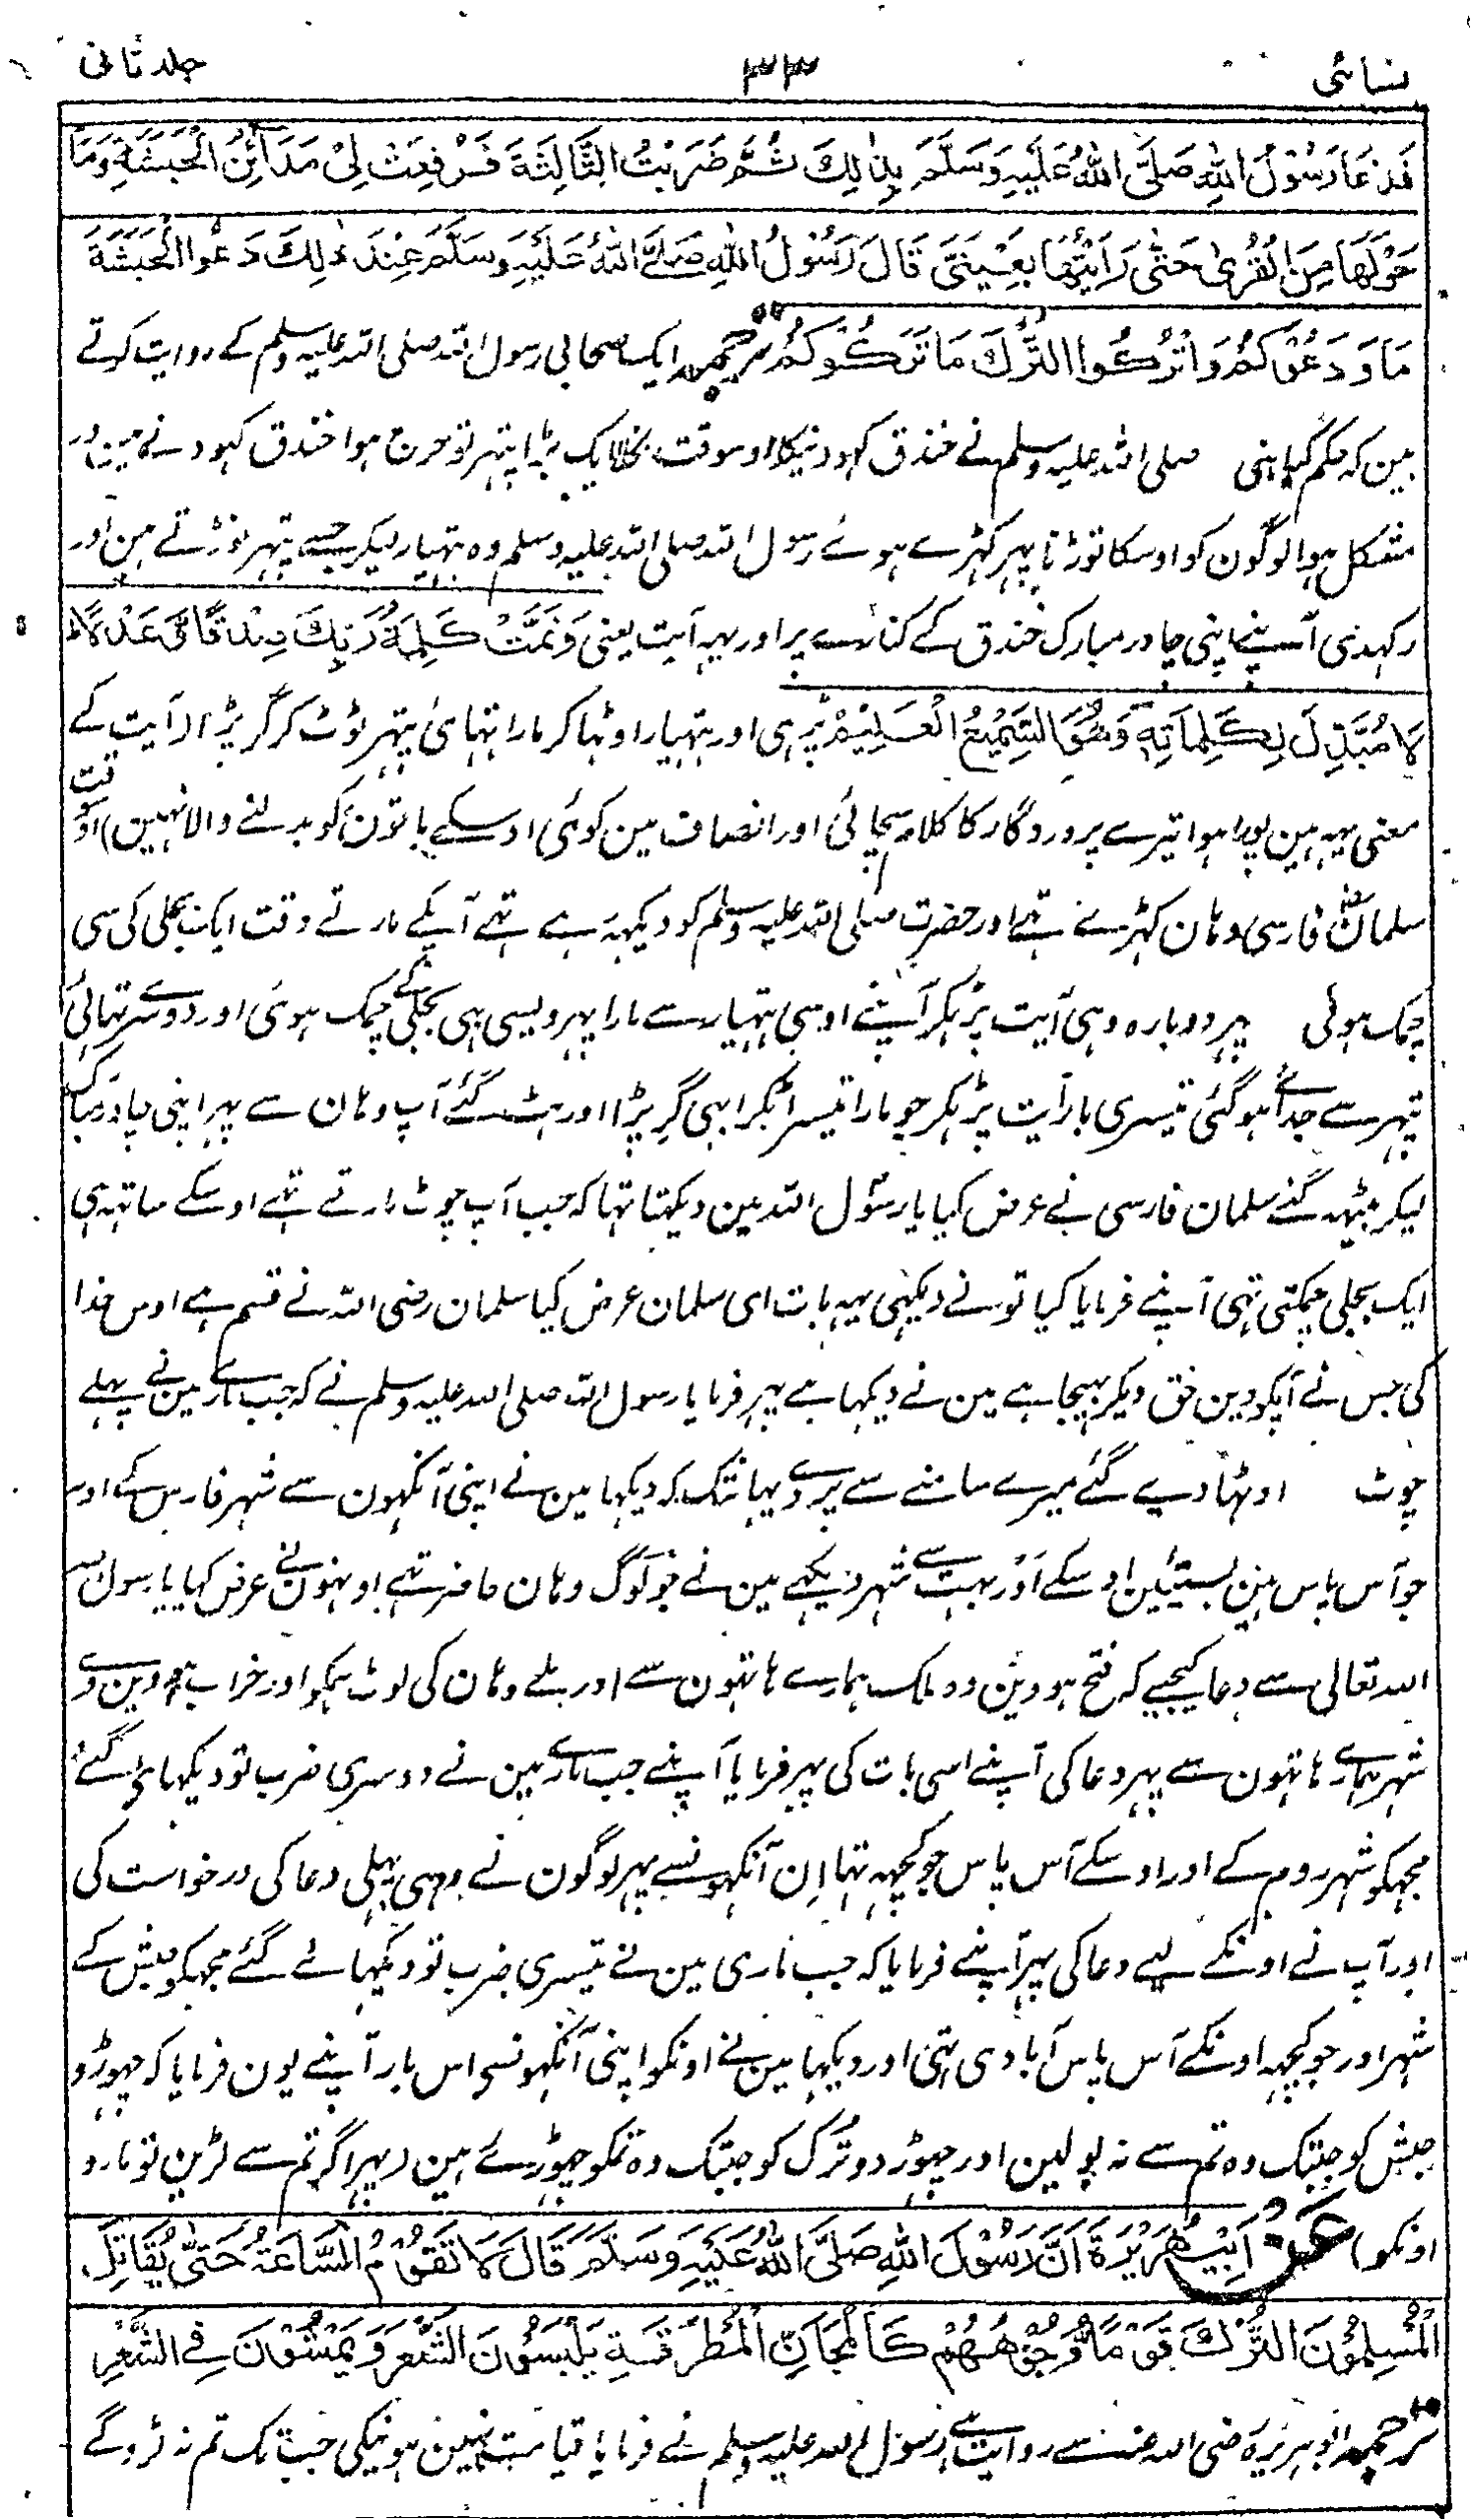 نسائی ۳۳ جلد ثانی
فَدَعَا رَسُوْلُ اللّٰهِ صَلَّى اللّٰهُ عَلَيْهِ وَسَلَّمَ بِذٰلِكَ ثُمَّ ضَرَبْتُ الثَّالِثَةَ فَرُفِعَتْ لِيْ مَدَائِنُ الْحَبَشَةِ وَمَا
حَوْلَهَا مِنَ الْقُرٰى حَتّٰى رَاَيْتُهَا بِعَيْنَيَّ قَالَ رَسُوْلُ اللّٰهِ صَلَّى اللّٰهُ عَلَيْهِ وَسَلَّمَ عِنْدَ ذٰلِكَ دَعُوا الْحَبَشَةَ
مَا وَدَعُوْكُمْ وَاتْرُكُوا التُّرْكَ مَا تَرَكُوْكُمْ ترجمہ ایک صحابی رسول اللہ صلی اللہ علیہ وسلم کے روایت کرتے
ہین کہ حکم کیا نبی صلی اللہ علیہ وسلم نے خندق کہودنیکا اوسوقت نکلا ایک بڑا پتہر تو حرج ہوا خندق کہودنے مین اور
مشکل ہوا لوگون کو اوسکا توڑنا پہر کہڑے ہوئے رسول اللہ صلی اللہ علیہ وسلم وہ ہتیار لیکر جسے پتہر توڑتے ہین اور
رکہدی آپنے اپنی چادر مبارک خندق کے کنارے پر اور یہہ آیت یعنی وَتَمَّتْ كَلِمَةُ رَبِّكَ صِدْقًا وَّعَدْلًا
لَا مُبَدِّلَ لِكَلِمَاتِهٖ وَهُوَ السَّمِيْعُ الْعَلِيْمُ پڑہی اور ہتہیار اوٹہا کر مارا تہائی پتہر ٹوٹ کر گر پڑا (آیت کے
معنی یہہ ہین پورا ہوا تیرے پروردگار کا کلام سچائی اور انصاف مین کوئی اوسکے باتون کو بدلنے والا نہین) اوسوقت
سلمان فارسی وہان کہڑے تہے اور حضرت صلی اللہ علیہ وسلم کو دیکہہ رہے تہے آپکے مارتے وقت ایک بجلی کی سی
چمک ہوئی پہر دوبارہ وہی آیت پڑہکر آپنے اوسی ہتہیار سے مارا پہر ویسی ہی بجلی کے چمک ہوئی اور دوسرے تہائی
پتہر سے جدا ہوگئی تیسری بار آیت پڑہکر جو مارا تیسرا ٹکرا بہی گر پڑا اور ہٹ گئے آپ وہان سے پہر اپنی چادر مبارک
لیکر بیٹہہ گئے سلمان فارسی نے عرض کیا یا رسول اللہ مین دیکہتا تہا کہ جب آپ چوٹ مارتے تہے اوسکے ساتہہ ہی
ایک بجلی چمکتی تہی آپنے فرمایا کیا تونے دیکہی یہہ بات ای سلمان عرض کیا سلمان رضی اللہ نے قسم ہے اوس خدا
کی جس نے آپکو دین حق دیکر بہیجا ہے مین نے دیکہا ہے پہر فرمایا رسول اللہ صلی اللہ علیہ وسلم نے کہ جب مارے مین نے پہلے
چوٹ اوٹہا دیے گئے میرے سامنے سے پردے یہانتک کہ دیکہا مین نے اپنی آنکہون سے شہر فارس کے اور
جو آس پاس ہین بستیین اوسکے اور بہت سے شہر دیکہے مین نے جو لوگ وہان حاضر تہے اونہون نے عرض کیا یا رسول اللہ
اللہ تعالی سے دعا کیجیے کہ فتح ہووین وہ ملک ہمارے ہاتہون سے اور ملے وہان کی لوٹ ہمکو اور خراب ہووین وے
شہر ہمارے ہاتہون سے پہر دعا کی آپنے اسی بات کی پہر فرمایا آپنے جب مارے مین نے دوسری ضرب تو دیکہائے گئے
مجہکو شہر روم کے اور اوسکے آس پاس جو کچہہ تہا اِن آنکہونسے پہر لوگون نے وہی پہلی دعا کی درخواست کی
اور آپ نے اونکے لیے دعا کی پہر آپنے فرمایا کہ جب ماری مین نے تیسری ضرب تو دکہائے گئے مجہکو حبش کے
شہر اور جو کچہہ اونکے آس پاس آبادی تہی اور دیکہا مین نے اونکو اپنی آنکہونسے اس بار آپنے یون فرمایا کہ چہوڑو
حبش کو جبتک وہ تم سے نہ بولین اور چہوڑ دو ترک کو جبتک وہ تمکو چہوڑے ہین (پہر اگر تم سے لڑین تو مارو
اونکو) عَنْ اَبِيْ هُرَيْرَةَ اَنَّ رَسُوْلَ اللّٰهِ صَلَّى اللّٰهُ عَلَيْهِ وَسَلَّمَ قَالَ لَا تَقُوْمُ السَّاعَةُ حَتّٰى يُقَاتِلَ
الْمُسْلِمُوْنَ التُّرْكَ قَوْمًا وُّجُوْهُهُمْ كَالْمَجَانِّ الْمُطَرَّقَةِ يَلْبَسُوْنَ الشَّعَرَ وَيَمْشُوْنَ فِي الشَّعَرِ
ترجمہ ابوہریرہ رضی اللہ عنہ سے روایت ہے رسول اللہ علیہ وسلم نے فرمایا قیامت نہین ہوئیکی جب تک تم نہ لڑوگے